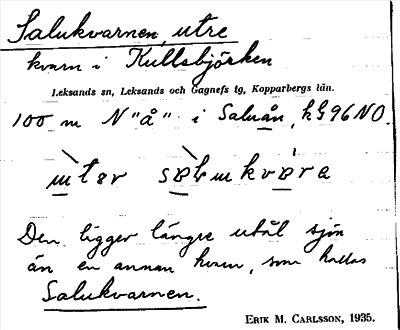 Salukvarnen, utre
kvarn i Kullsbjörken
Leksands sn, Leksands och Gagnefs tg, Kopparbergs län.
100 m N "å" i Saluån, kG96NO.
Den ligger längre utåt sjön
än en annan kvarn, som kallas
Salukvarnen.
ERIK M. CARLSSON, 1935.